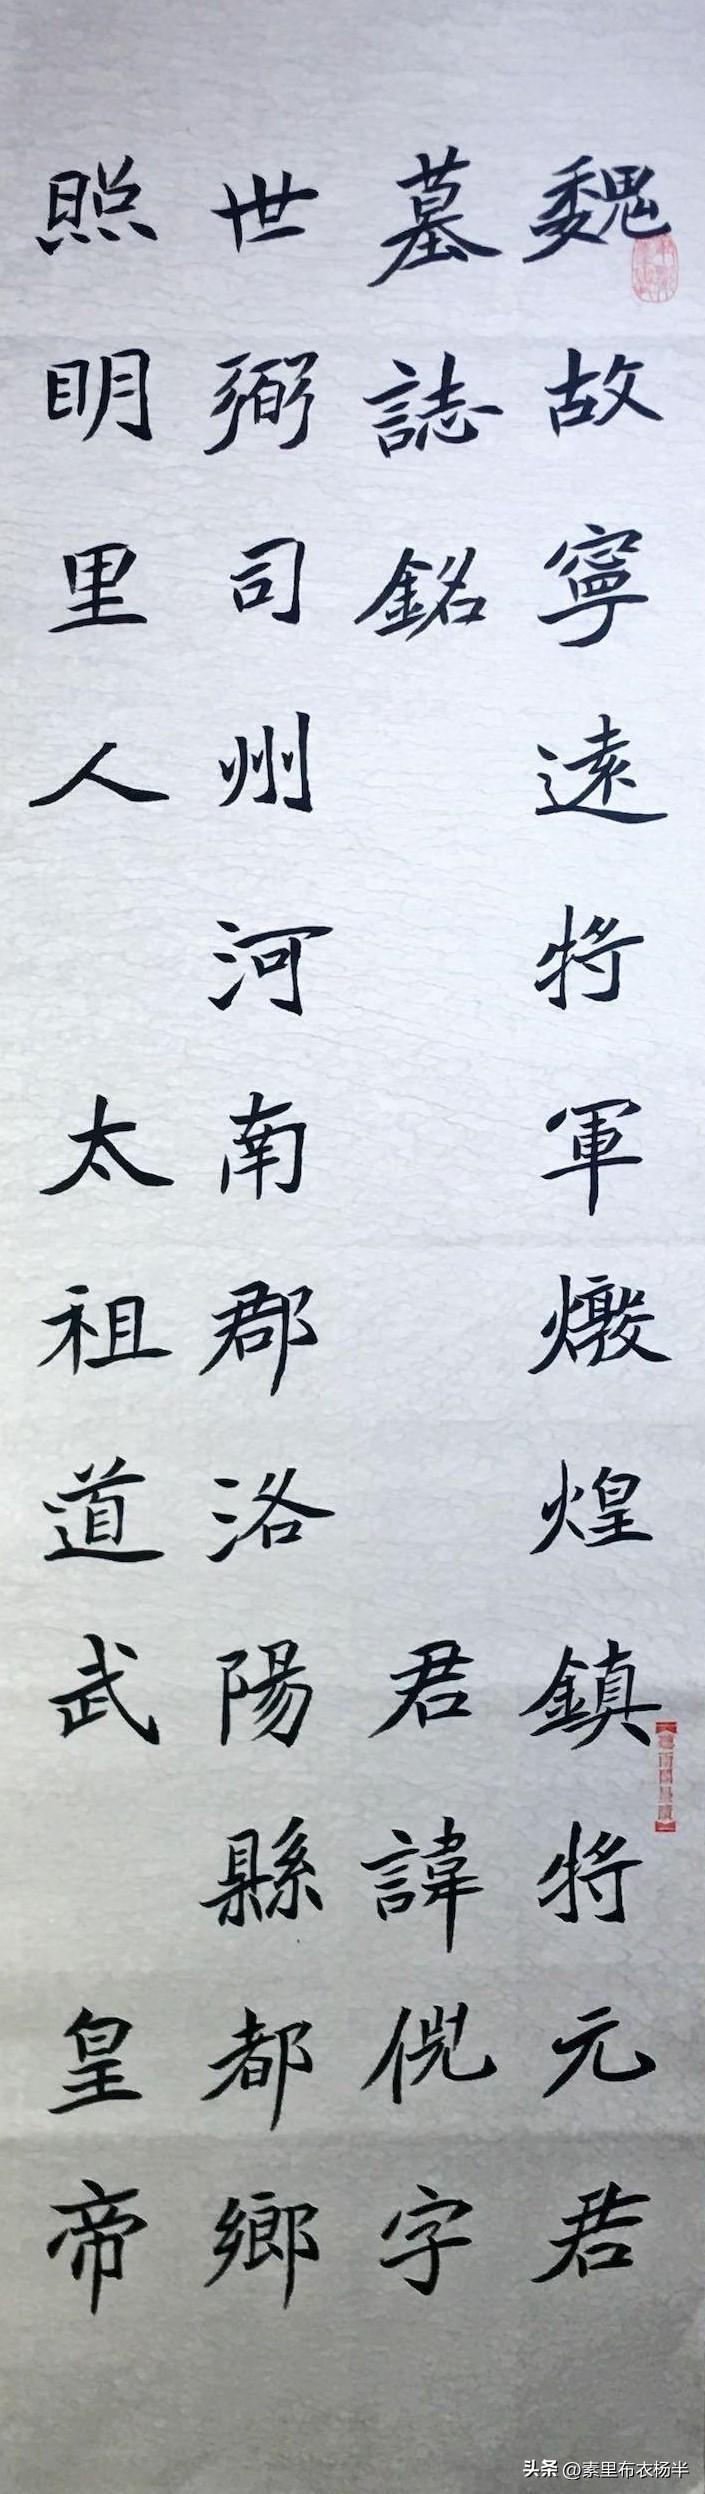 魏故寧遠將軍燉煌鎮將元君
墓誌銘 君諱倪字
世弼司州河南郡洛陽縣都鄉
照明里人 太祖道武 皇帝
头条 @素里布衣杨半